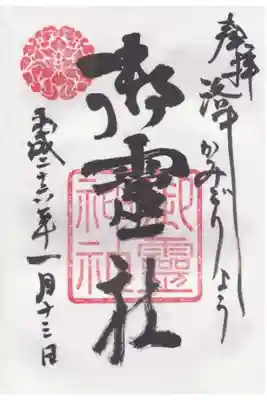 奉拝
洛中かみごりよう
御靈社
御靈神社
平成二十六年一月十三日